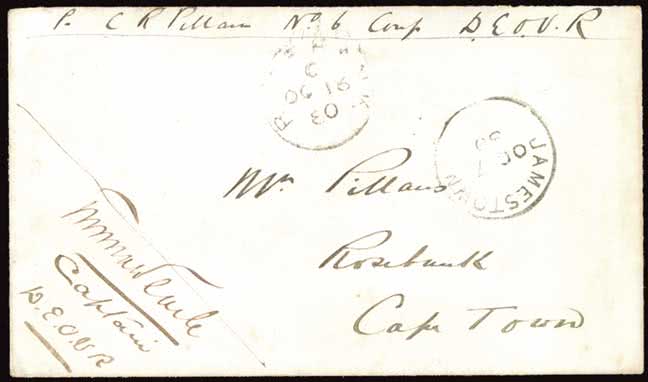 P. C R Pillans No. 6 Comp D.E.O.V.R
JAMESTOWN
OC 7
80
Mr Pillans
Rosebank
Cape Town
Captain
D.E.O.V.R